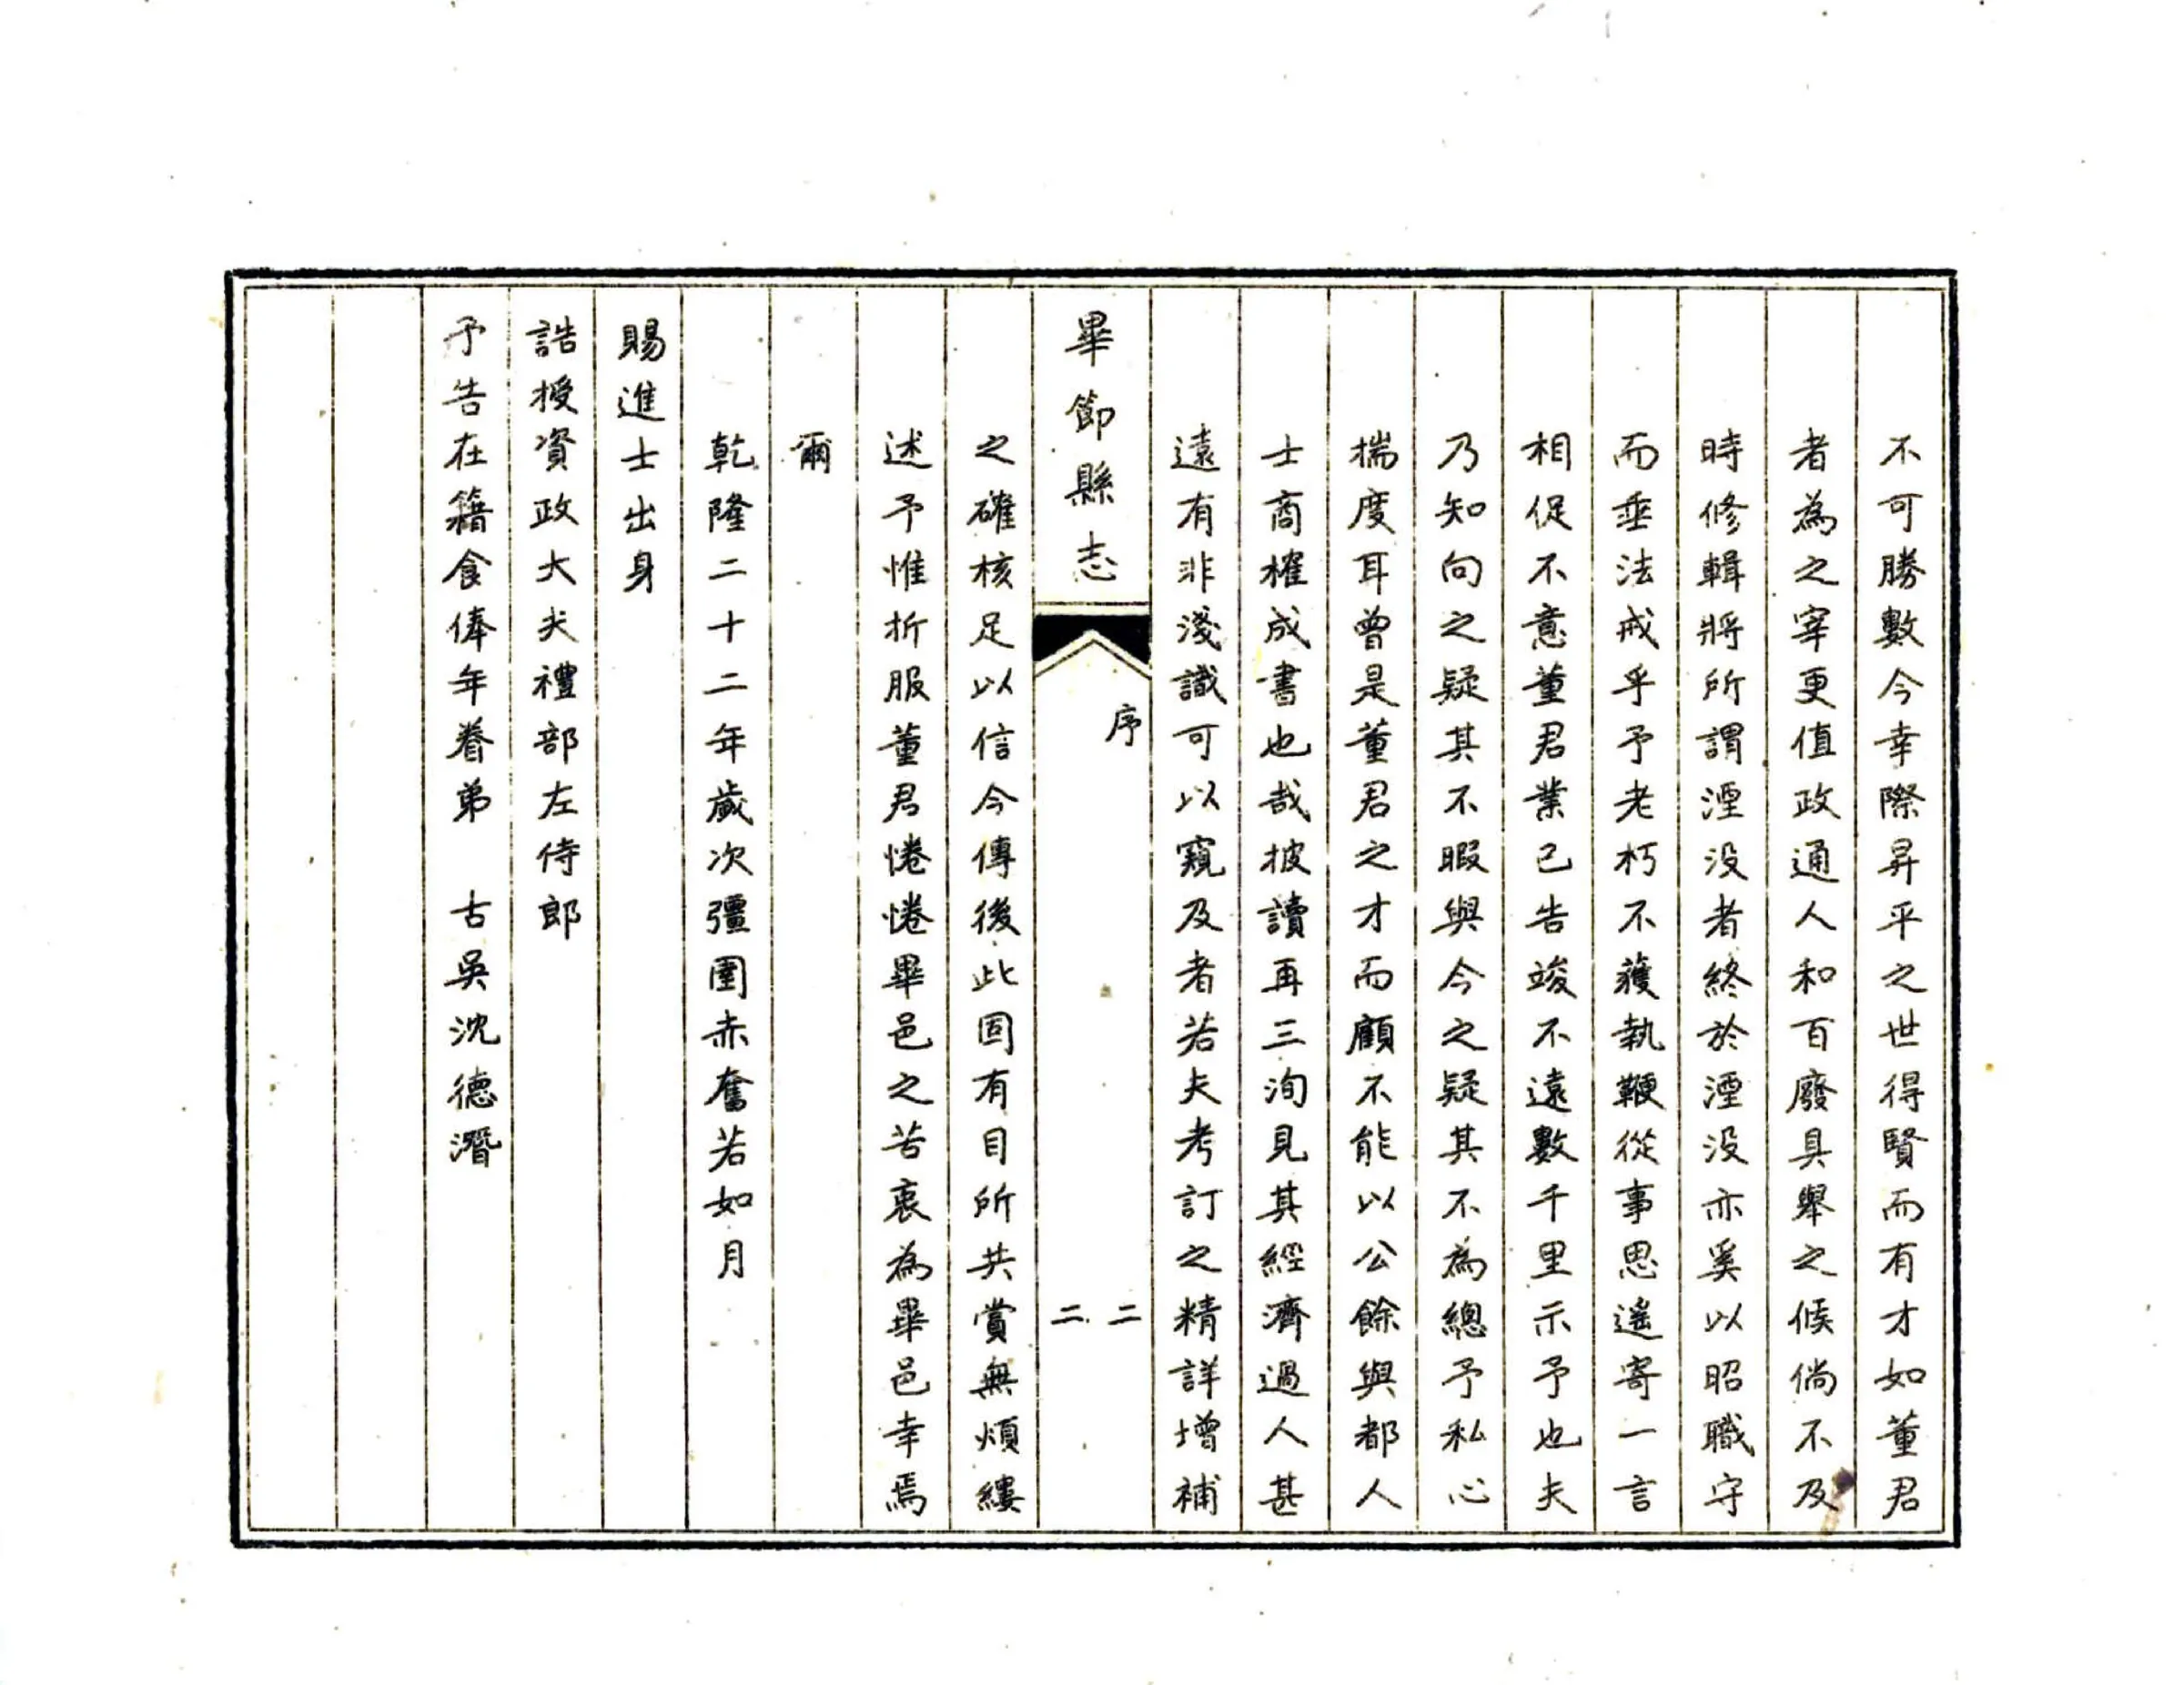 不可勝數今幸際昇平之世得賢而有才如董君
者為之宰更值政通人和百廢具舉之候倘不及
時修輯將所謂湮没者終於湮没亦奚以昭職守
而垂法戒乎予老朽不獲執鞭從事思遙寄一言
相促不意董君業已告竣不遠數千里示予也夫
乃知向之疑其不暇與今之疑其不為總予私心
揣度耳曾是董君之才而顧不能以公餘與都人
士商榷成書也哉披讀再三洵見其經濟過人甚
遠有非淺識可以窺及者若夫考訂之精詳增補
畢節縣志
序
二
二
之確核足以信今傳後此固有目所共賞無煩縷
述予惟折服董君惓惓畢邑之苦衷為畢邑幸焉
爾
乾隆二十二年歲次彊圉赤奮若如月
賜進士出身
誥授資政大夫禮部左侍郎
予告在籍食俸年眷弟　古吳沈德潛